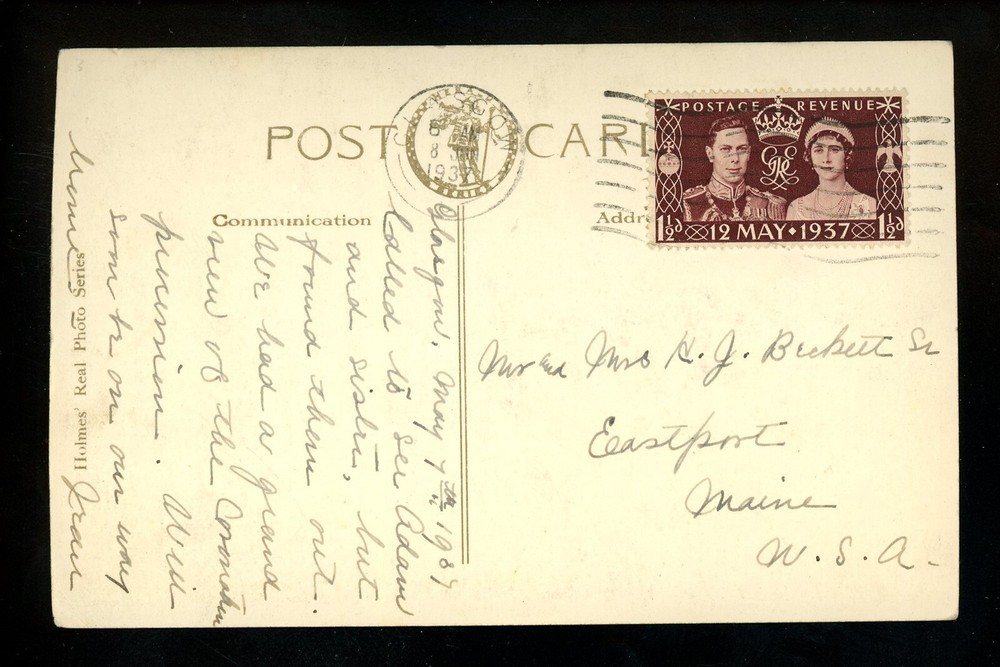 POST CARD
Communication
Addre
GLASGOW
8 JUN
1937
POSTAGE REVENUE
1½D 12 MAY • 1937 1½D
Glasgow, May 7th 1937
Called to see Adam
and sister, but
found them out.
We had a grand
view of the Coronation
procession. Will
soon be on our way
home —
Holmes' Real Photo Series
Mr and Mrs H. J. Beckett Sr
Eastport
Maine
U. S. A.